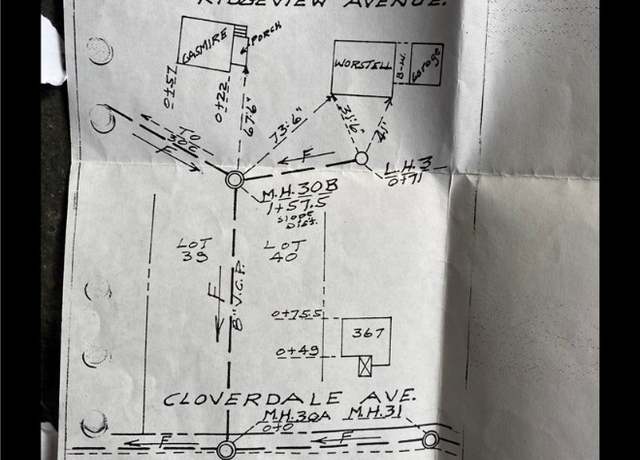 RIDGEVIEW AVENUE.
GASMIRE
PORCH
WORSTELL
B-W.
Garage
0+51
0+22
67'6"
73'-6"
35'-6"
TO
30C
F
F
L.H.3
0+71
M.H.30B
1+57.5
SLOPE
DIST.
LOT
39
LOT
40
F
8" V.C.P.
0+75.5
367
0+49
CLOVERDALE AVE.
M.H.30A
0+0
M.H.31
F
F